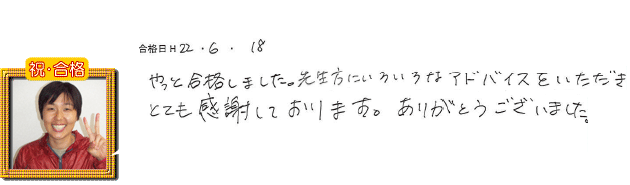 合格日 H 22 . 6 . 18
祝・合格
やっと合格しました。先生方にいろいろなアドバイスをいただき
とても感謝しております。ありがとうございました。